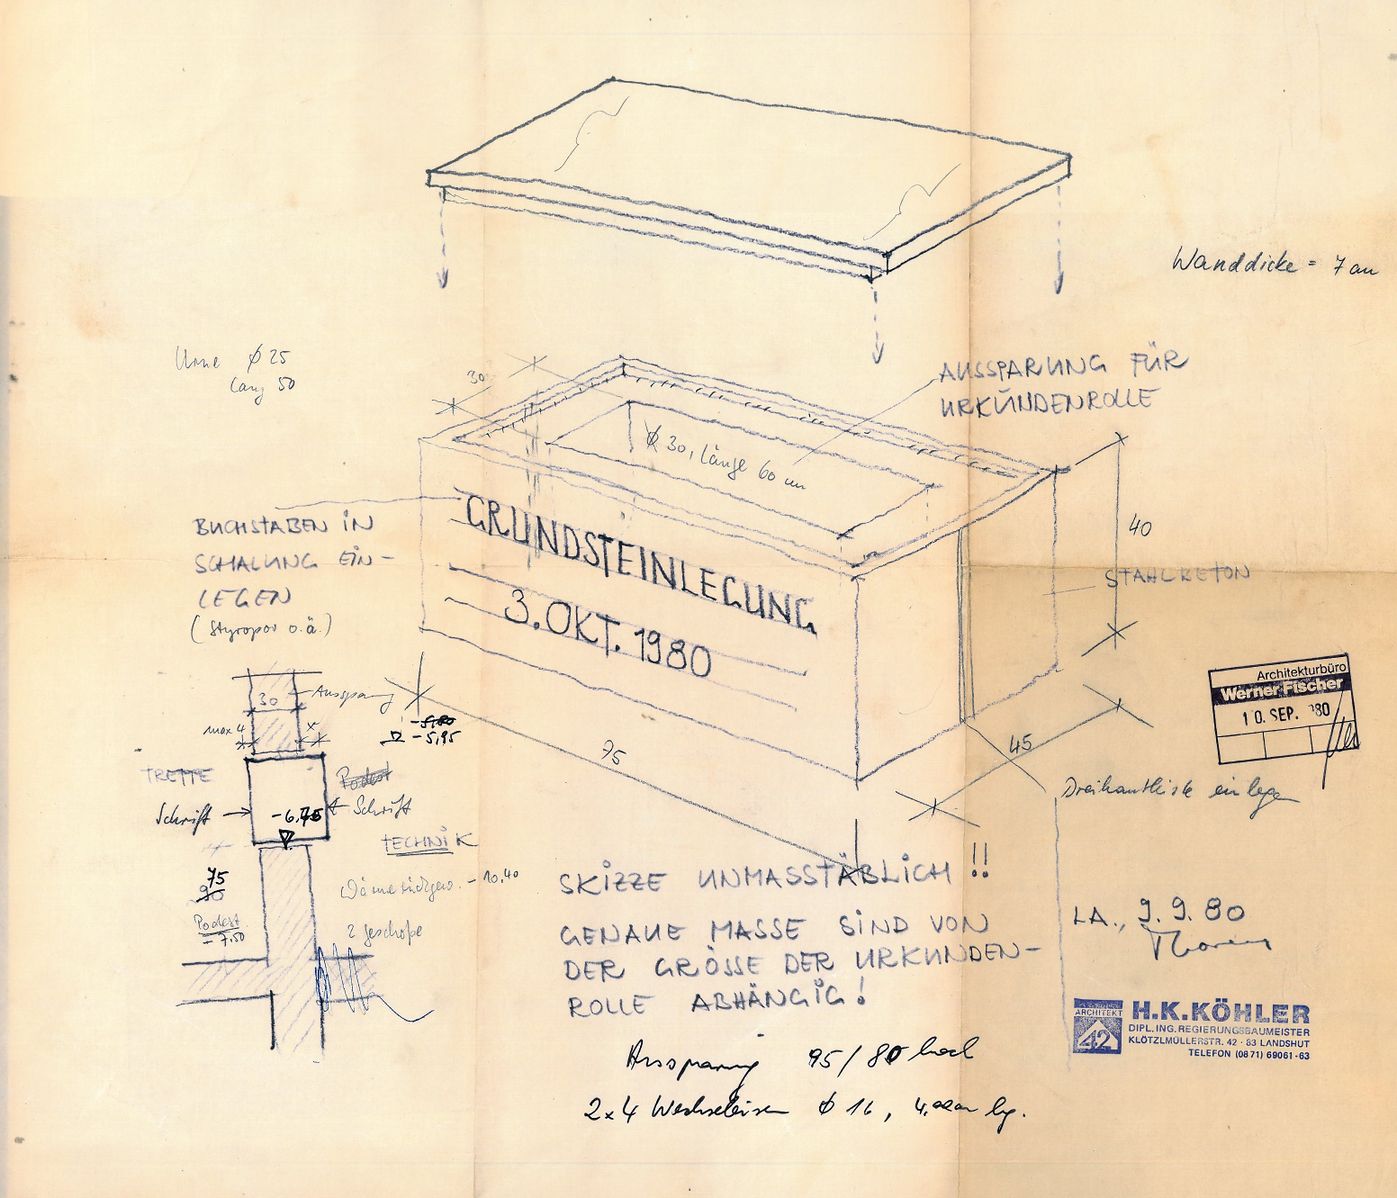 Wanddicke = 7 cm
Urne Ø 25
lang 50
30
AUSSPARUNG FÜR
URKUNDENROLLE
Ø 30, Länge 60 cm
40
STAHLBETON
BUCHSTABEN IN
SCHALUNG EIN-
LEGEN
(Styropor o.ä.)
GRUNDSTEINLEGUNG
3. OKT. 1980
30
Aussparung
max 4
x
-5,80
-5,95
75
45
Architekturbüro
Werner Fischer
10. SEP. 80
Dreikantleiste einlegen
TREPPE
Podest
Schrift
-6,75
Schrift
TECHNIK
75
90
Podest
-7.50
-10.40
2 Geschoße
SKIZZE UNMASSTÄBLICH !!
GENAUE MASSE SIND VON
DER GRÖSSE DER URKUNDEN-
ROLLE ABHÄNGIG!
LA., 9.9.80
Aussparung 95/80 hoch
2x4 Wechseleisen Ø 16, 4,00m lg.
ARCHITEKT
42
H.K.KÖHLER
DIPL.ING.REGIERUNGSBAUMEISTER
KLÖTZLMÜLLERSTR. 42 · 83 LANDSHUT
TELEFON (0871) 69061-63